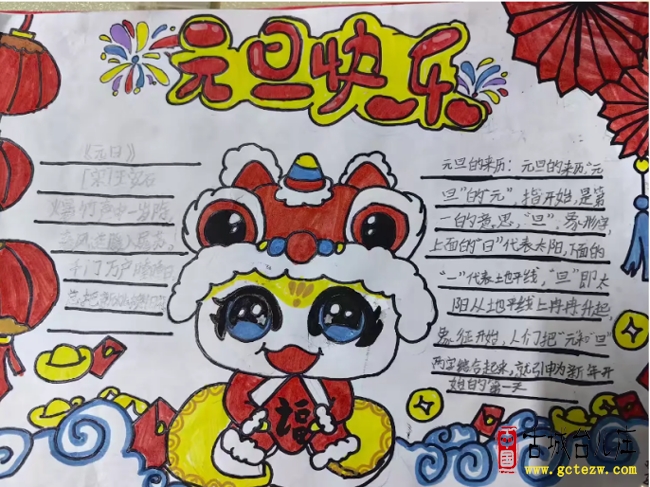 元旦快乐
《元日》
[宋]王安石
爆竹声中一岁除，
千门万户曈曈日
元旦的来历：元旦的来历："元
旦"的"元"，指开始，是第
一的意思，"旦"，象形字，
上面的"日"代表太阳，下面的
"一"代表地平线，"旦"即太
阳从地平线上冉冉升起
象征开始，人们把"元"和"旦"
两字结合起来，就引申为新年开
始的第一天
福
www.gctezw.com